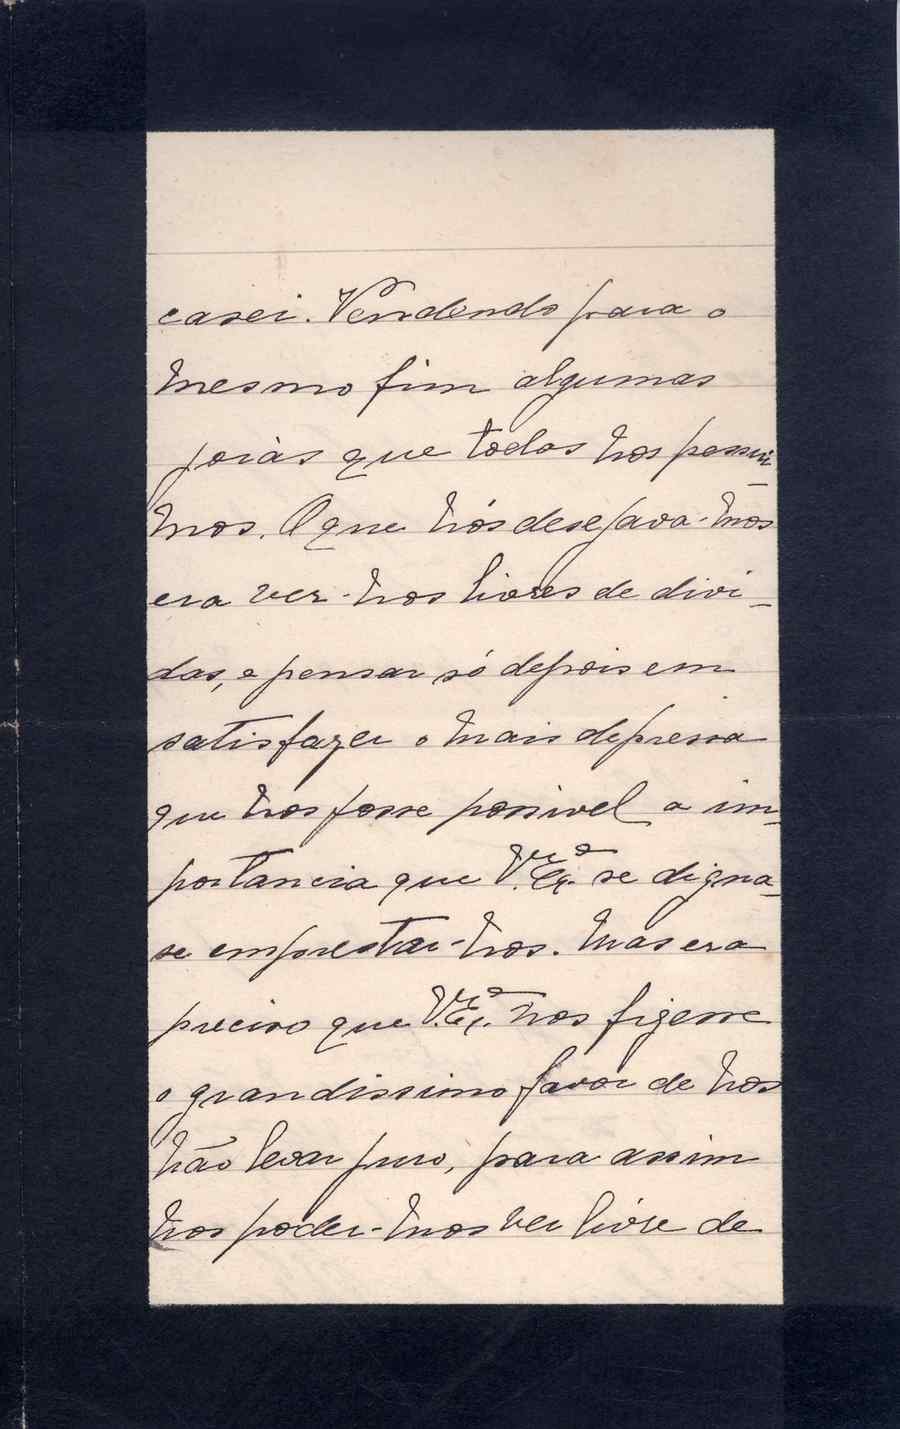 casei. Vendendo para o
mesmo fim algumas
joiàs que todos nos possui-
mos. O que nós deseja va-mos
era ver-nos livres de divi-
das, e pensar só depois em
satisfazer o mais depressa
que nos fosse possivel a im-
portancia que V.Exª se digna-
se emprestar-nos. Mas era
preciso que V.Exª nos fizesse
o grandissimo favor de nos
não levar juro, para assim
nos poder-mos ver livre de